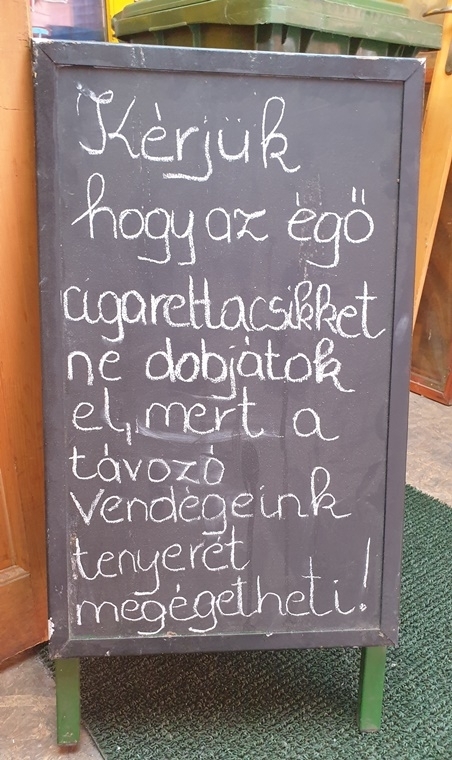 Kérjük
hogy az égő
cigarettacsikket
ne dobjátok
el, mert a
távozó
vendégeink
tenyerét
megégetheti!